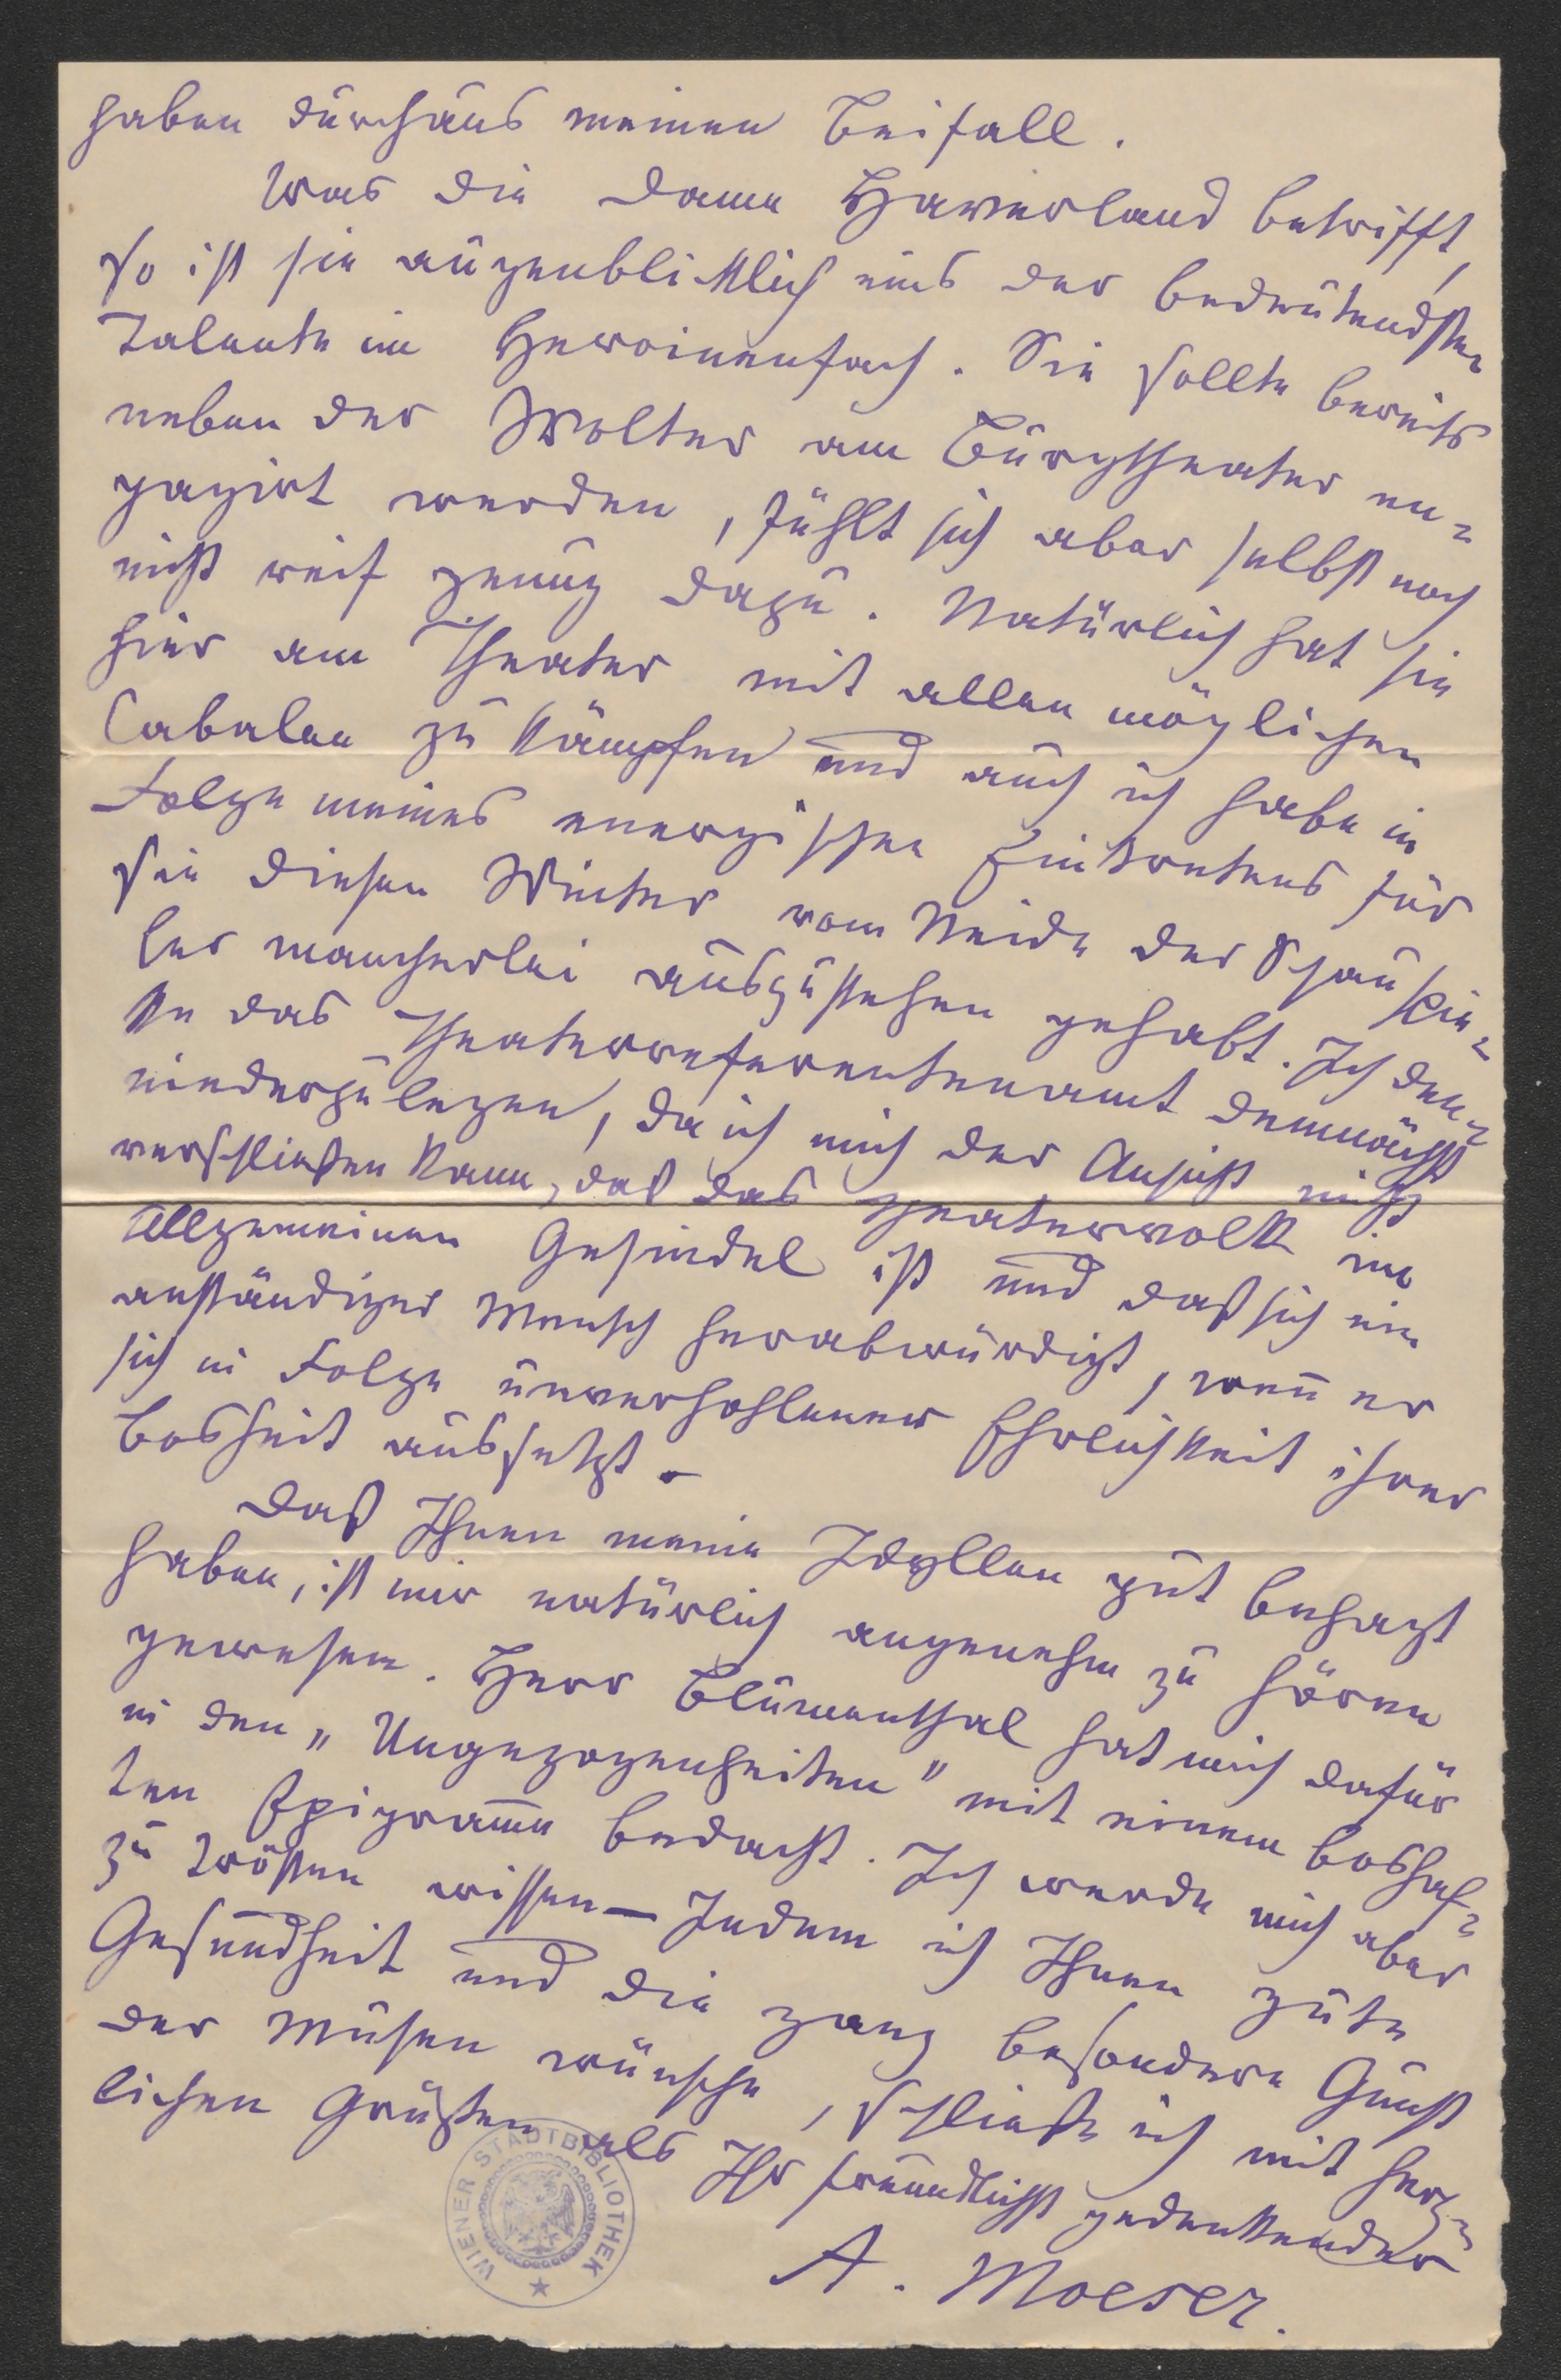 haben durchaus meinen Beifall.
Was die Dame Haverland betrifft,
so ist sie augenblicklich eins der bedeutendsten
Talente im Heroinenfach. Sie sollte bereits
neben der Wolter am Burgtheater en-
gagirt werden, fühlt sich aber selbst noch
nicht reif genug dazu. Natürlich hat sie
hier am Theater mit allen möglichen
Cabalen zu kämpfen und auch ich habe in
Folge meines energischen Eintretens für
sie diesen Winter vom Neide der Schauspie-
ler mancherlei auszustehen gehabt. Ich den-
ke das Theaterreferentenamt demnächst
niederzulegen, da ich mich der Ansicht nicht
verschließen kann, daß das Theatervolk im
Allgemeinen Gesindel ist und daß sich ein
anständiger Mensch herabwürdigt, wenn er
sich in Folge unverhohlener Ehrlichkeit ihrer
Bosheit aussetzt.
Daß Ihnen meine Idyllen gut behagt
haben, ist mir natürlich angenehm zu hören
gewesen. Herr Blumenthal hat mich dafür
in den „Ungezogenheiten" mit einem boshaf-
ten Epigramme bedacht. Ich werde mich aber
zu trösten wissen – Indem ich Ihnen gute
Gesundheit und die ganz besondere Gunst
der Musen wünsche, schließe ich mit herz-
lichen Grüßen als Ihr freundlichst gedenkender
A. Moeser.
WIENER STADTBIBLIOTHEK